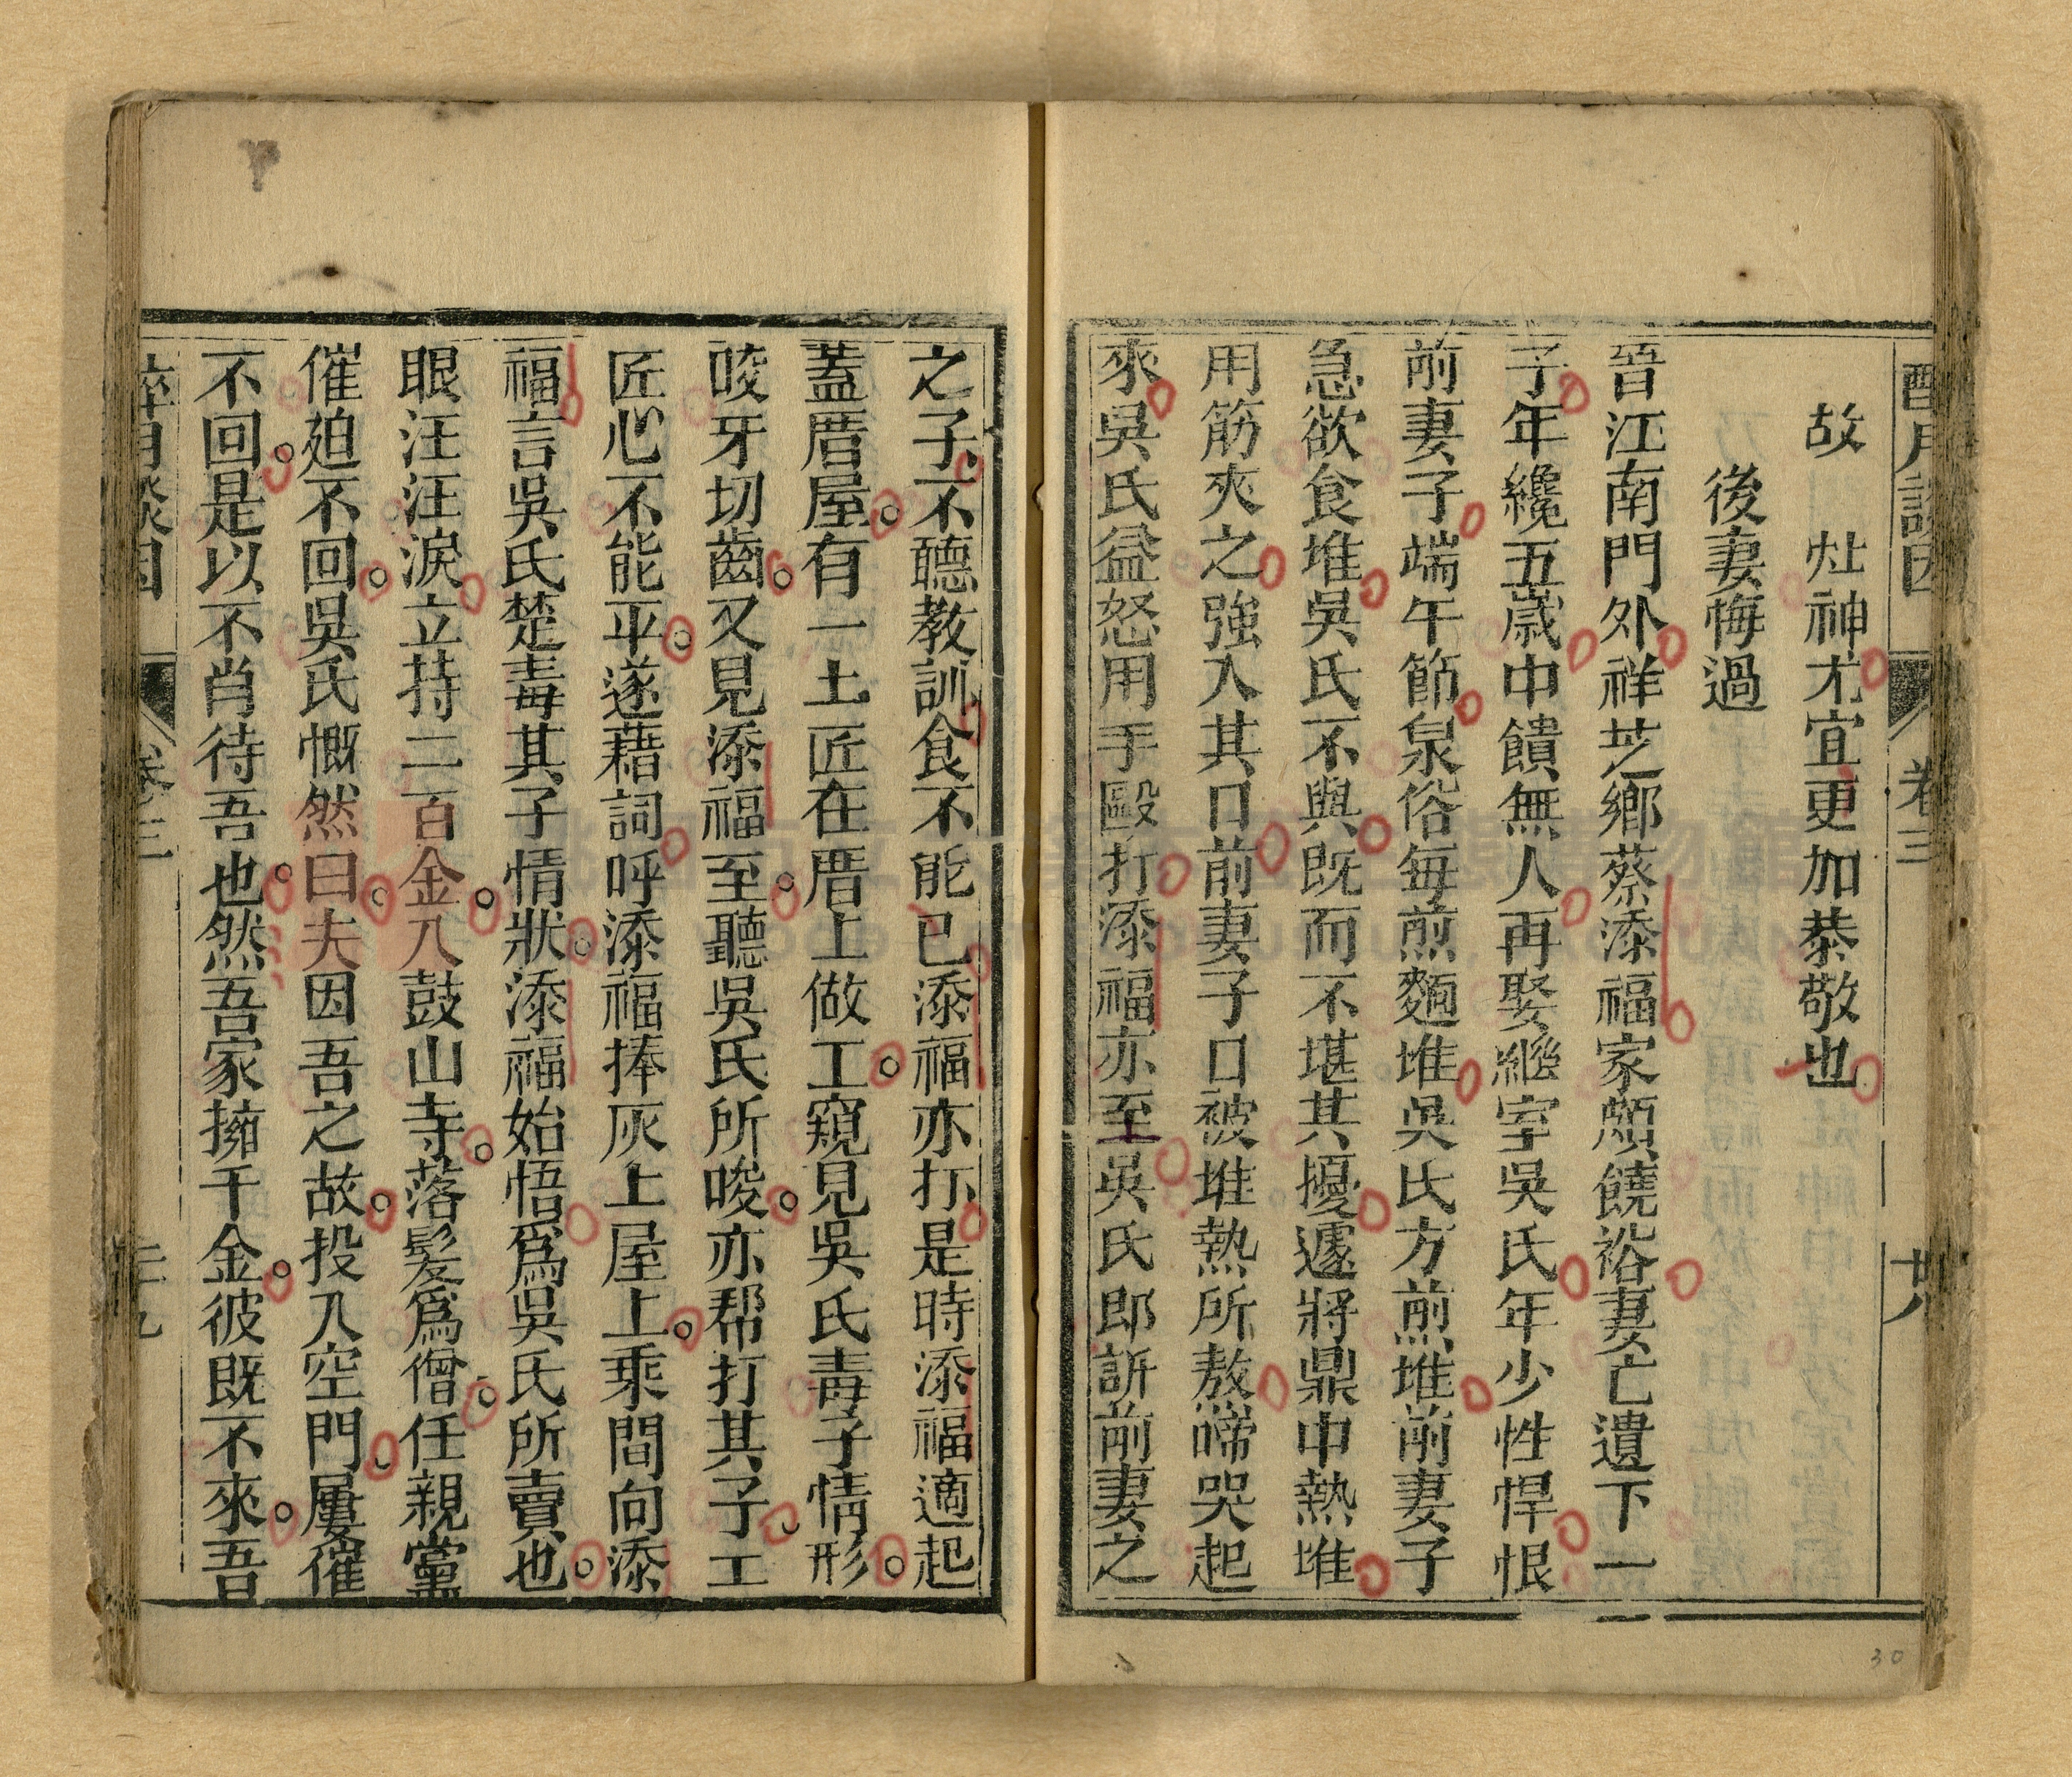 卷三
廿八
故　灶神尤宜更加恭敬也
後妻悔過
晉江南門外祥芝鄉蔡添福家頗饒裕妻亡遺下一
子年纔五歲中饋無人再娶繼室吳氏年少性悍恨
前妻子端午節泉俗每煎麵堆吳氏方煎堆前妻子
急欲食堆吳氏不與既而不堪其擾遽將鼎中熱堆
用筋夾之強入其口前妻子口被堆熱所熬啼哭起
來吳氏益怒用手毆打添福亦至吳氏即訴前妻之
之子不聽教訓食不能已添福亦打是時添福適起
蓋厝屋有一土匠在厝上做工窺見吳氏毒子情形
咬牙切齒又見添福至聽吳氏所唆亦帮打其子工
匠心不能平遂藉詞呼添福捧灰上屋上乘間向添
福言吳氏楚毒其子情狀添福始悟爲吳氏所賣也
眼汪汪淚立持二百金入鼓山寺落髮爲僧任親黨
催廹不回吳氏慨然曰夫因吾之故投入空門屢催
不回是以不肖待吾也然吾家擁千金彼既不來吾